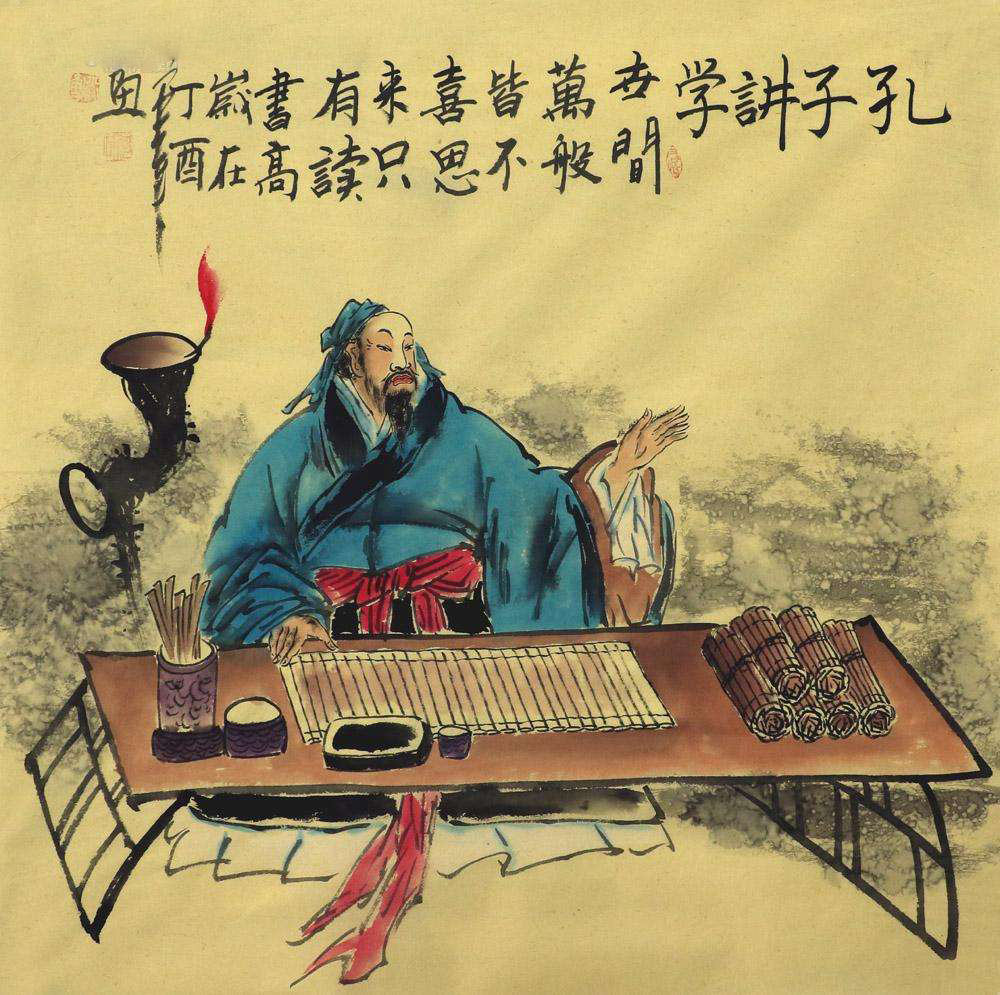 孔子讲学
世間
萬般
皆不
喜思
来只
有讀
書高
歲在
丁酉